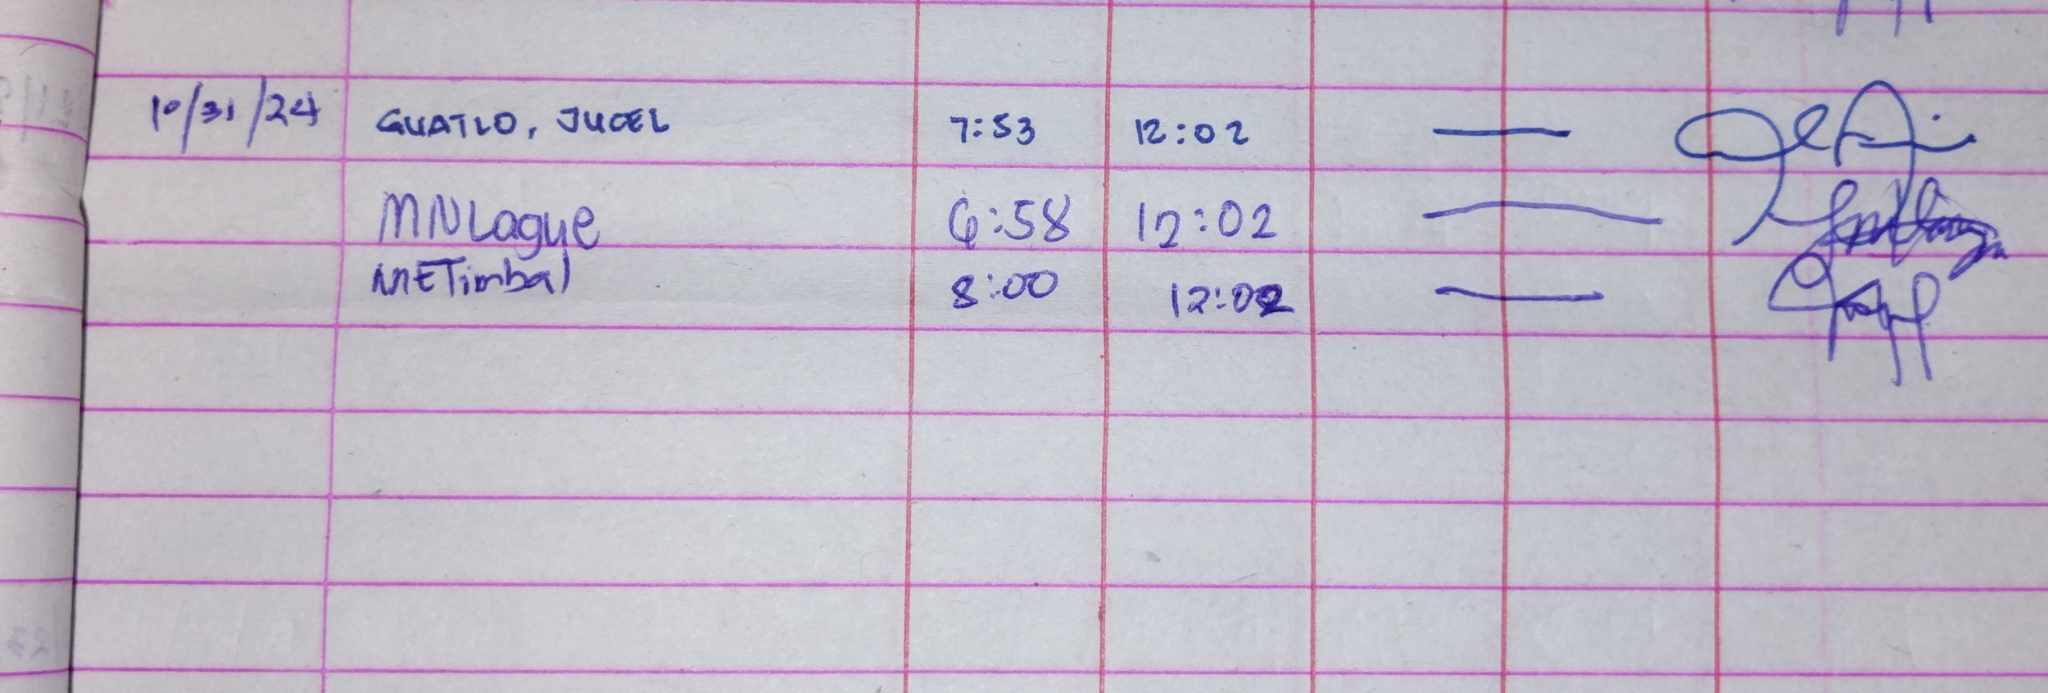 10/31/24 GUATLO, JUCEL 7:53 12:02 —
MNLague 6:58 12:02 —
METimbal 8:00 12:02 —